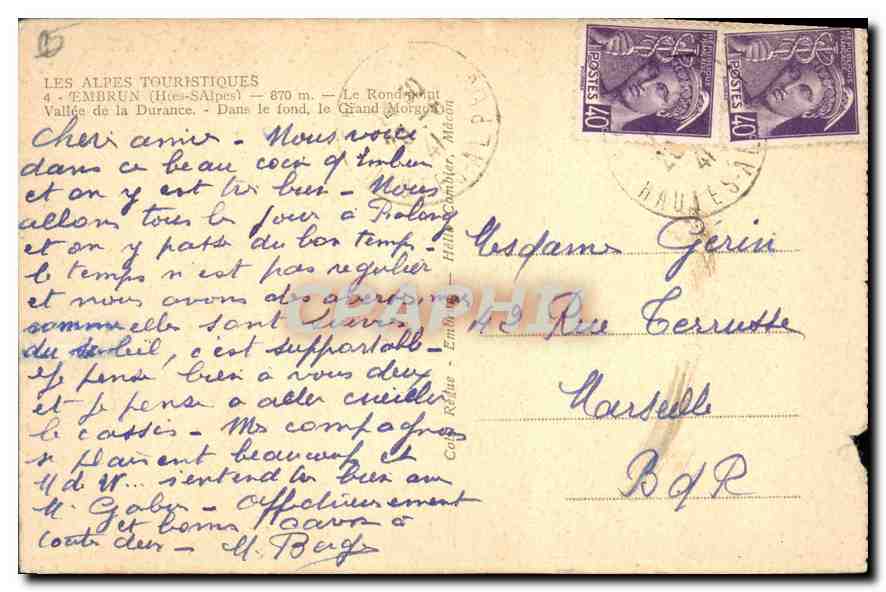 LES ALPES TOURISTIQUES
4 - EMBRUN (Htes-SAlpes) — 870 m. — Le Rond-point
Vallée de la Durance. - Dans le fond, le Grand Morgon
Chère amie - Nous voici
dans ce beau coin d'Embrun
et on y est très bien - Nous
allons tous les jours à
et on y passe du bon temps -
le temps n'est pas regulier
et nous avons des averses, mais
comme elles sont suivies
du soleil, c'est supportable -
Je pense bien à vous deux
et je pense a aller cueillir
le cassis - Mes compagnons
se plaisent beaucoup et
M de W... s'entend très bien avec
M. - Affectueusement
et bonne à
toutes deux - M.
Mesdames Gerin
42 Rue Terrusse
Marseille
B d R
Coll. Redue - Embrun — Hélio Combier, Mâcon
REPUBLIQUE FRANÇAISE
POSTES 40c
REPUBLIQUE FRANÇAISE
POSTES 40c
41
HAUTES-ALPES
CPAPHIL